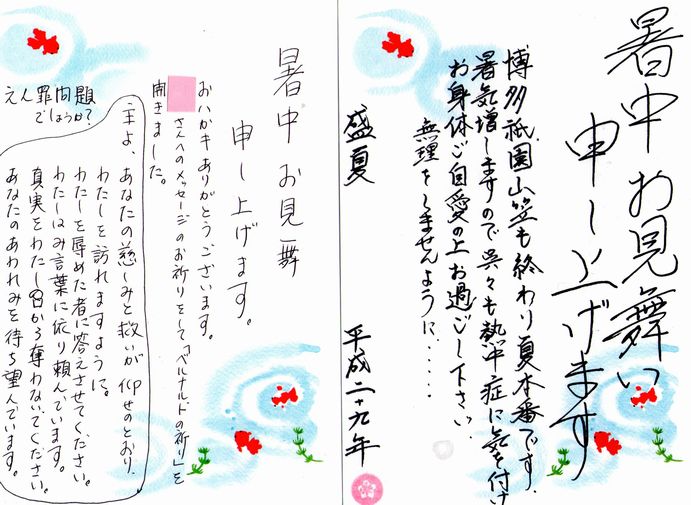 暑中お見舞い
申し上げます
博多祇園山笠も終わり夏本番です.
暑気増しますので呉々も熱中症に気を付け
お身体ご自愛の上お過ごし下さい.
無理をしませんように......
盛夏
平成二十九年
暑中お見舞
申し上げます。
おハガキありがとうございます。
さんへのメッセージのお祈りをして、「ベルナルドの祈り」を
開きました。
えん罪問題
でしょうか?
主よ、あなたの慈しみと救いが仰せのとおり、
わたしを訪れますように。
わたしを辱めた者に答えさせてください。
わたしはみ言葉に依り頼んでいます。
真実をわたしの口から奪わないでください。
あなたのあわれみを待ち望んでいます。